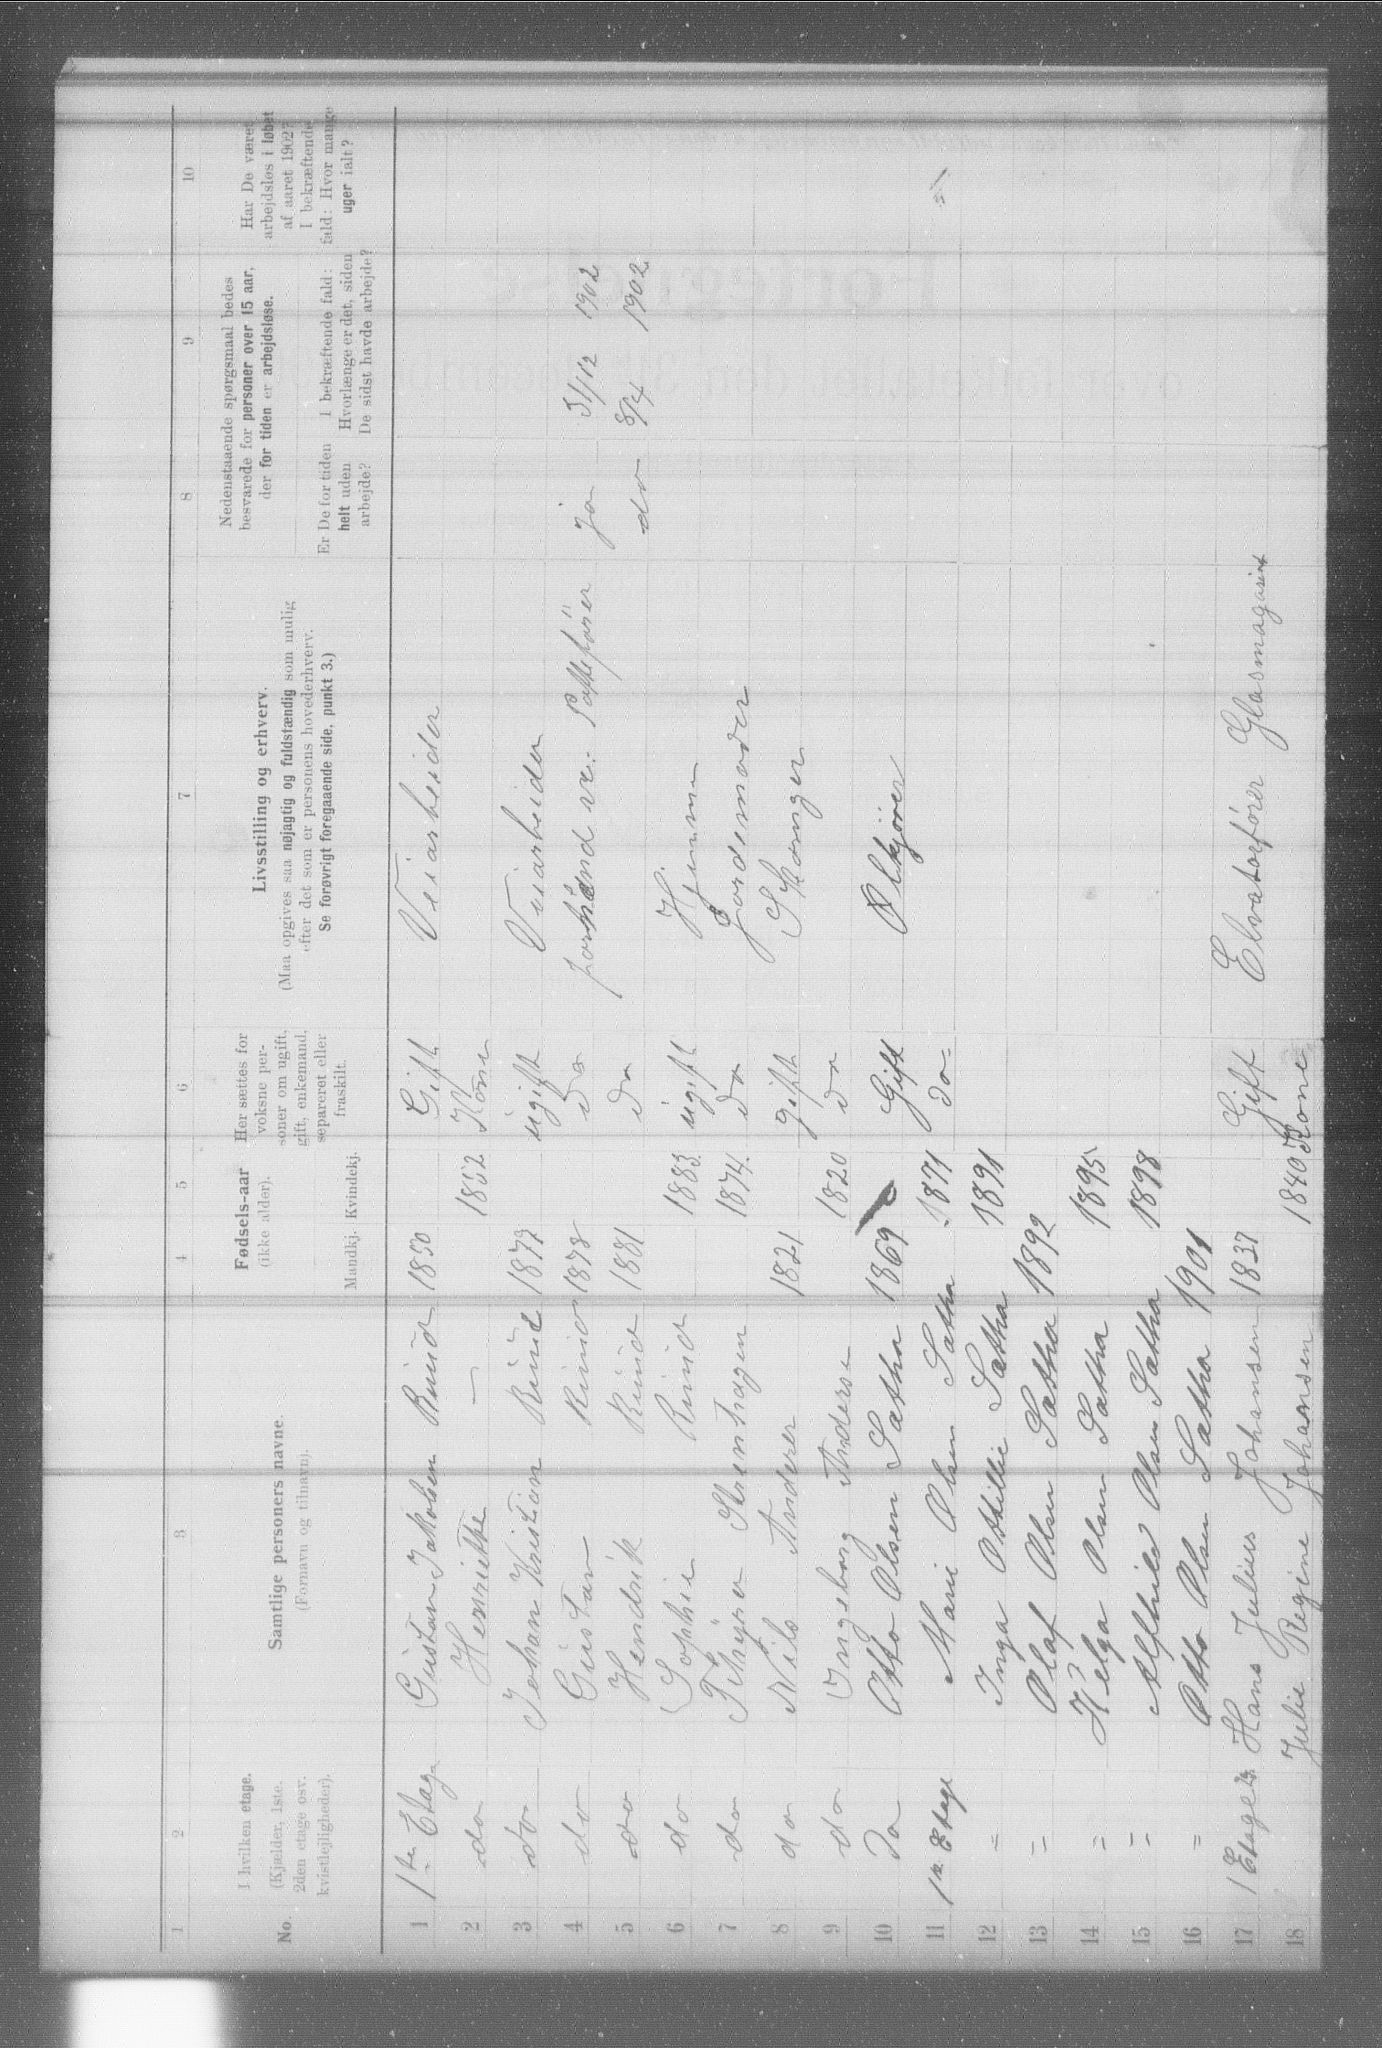 1 2 3 4 5 6 7 8 9 10
No.
I hvilken etage.
(Kjælder, 1ste.
2den etage osv.
kvistlejligheder).
Samtlige personers navne.
(Fornavn og tilnavn).
Fødsels-aar
(ikke alder).
Mandkj. Kvindekj.
Her sættes for
voksne per-
soner om ugift,
gift, enkemand,
separeret eller
fraskilt.
Livsstilling og erhverv.
(Maa opgives saa nøjagtig og fuldstændig som mulig
efter det som er personens hovederhverv.
Se forøvrigt foregaaende side, punkt 3.)
Nedenstaaende spørgsmaal bedes
besvarede for personer over 15 aar,
der for tiden er arbejdsløse.
Er De for tiden
helt uden
arbejde?
I bekræftende fald:
Hvorlænge er det, siden
De sidst havde arbejde?
Har De været
arbejdsløs i løbet
af aaret 1902?
I bekræftende
fald: Hvor mange
uger ialt?
1 1ste Etage Gustav Jakobsen Rund 1850 Gift Veiarbeider
2 do Henriette — 1852 Kone
3 do Johan Kristian Rund 1877 ugift Veiarbeider
4 do Gustav Rund 1878 do ja 31/12 1902
5 do Hendrik Rund 1881 do do 8/4 1902
6 do Sophie Rund 1883 ugift Hjemme
7 do Thyra 1874 do Jordemoder
8 do Nils Andersen 1821 gift
9 do Ingeborg Andersen 1820 do
10 do Otto Olsen Sætha 1869 Gift Ølkjører
11 1ste Etage Marie Olsen Sætha 1871 do
12 = Inga Ottillie Sætha 1891
13 = Olaf Olsen Sætha 1892
14 = Helga Olsen Sætha 1895
15 = Alfhild Olsen Sætha 1898
16 = Otto Olsen Sætha 1901
17 1 Etage Hans Julius Johansen 1837 Gift Elvatorfører Glasmagasinet
18 Julie Regine Johansen 1840 Kone